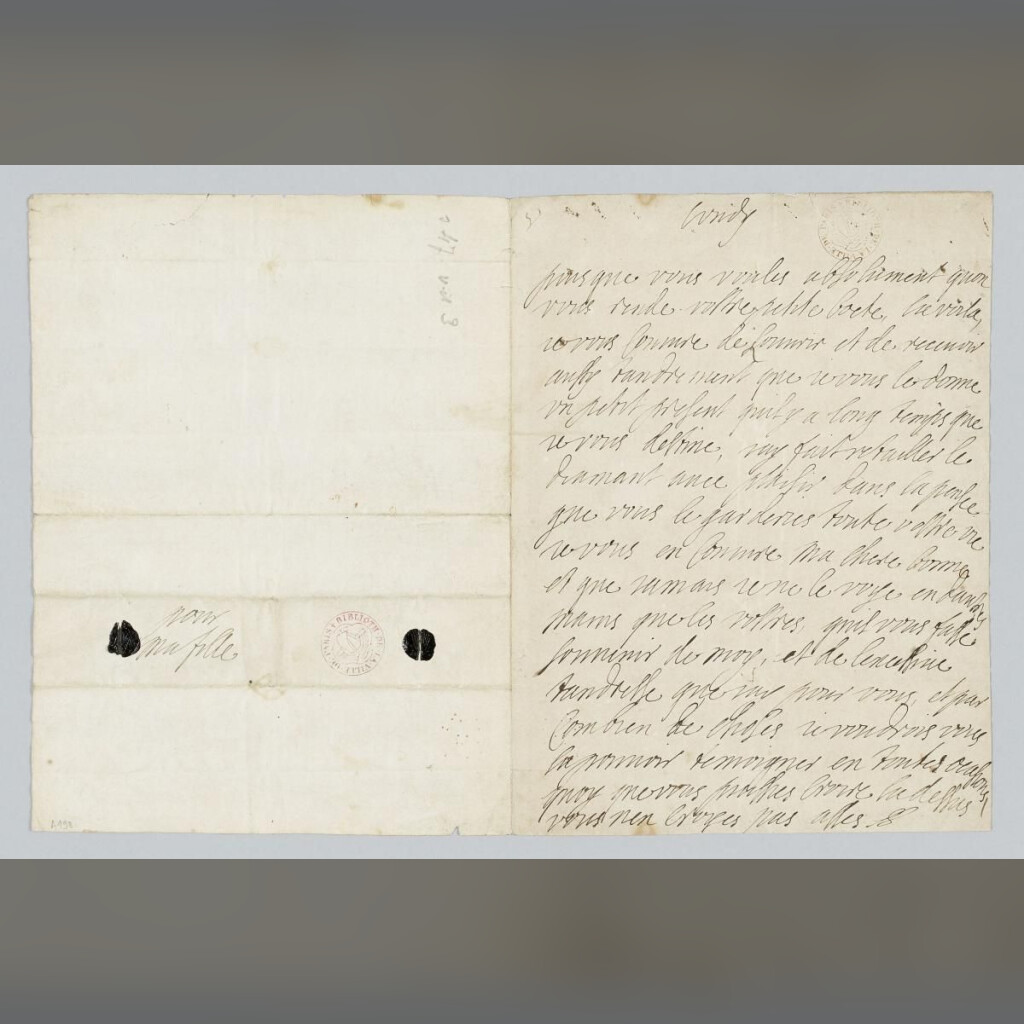 pour
ma fille
lundy
puis que vous voules absolument quon
vous rende vostre petite boete, la voila,
ie vous coniure de louurir et de receuoir
aussy tandrement que ie vous le donne
vn petit present quil y a long temps que
ie vous destine, iay fait retailler le
diamant auec plaisir dans la pensee
que vous le garderies toute vostre vie
ie vous en coniure ma chere bonne
et que iamais ie ne le voye en dautres
mains que les vostres, quil vous fasse
souuenir de moy, et de lexcessiue
tandresse que iay pour vous, et par
combien de choses ie voudrois vous
la pouuoir temoigner en toutes ocasions
quoy que vous puissies croire la dessus
vous nen croyes pas asses